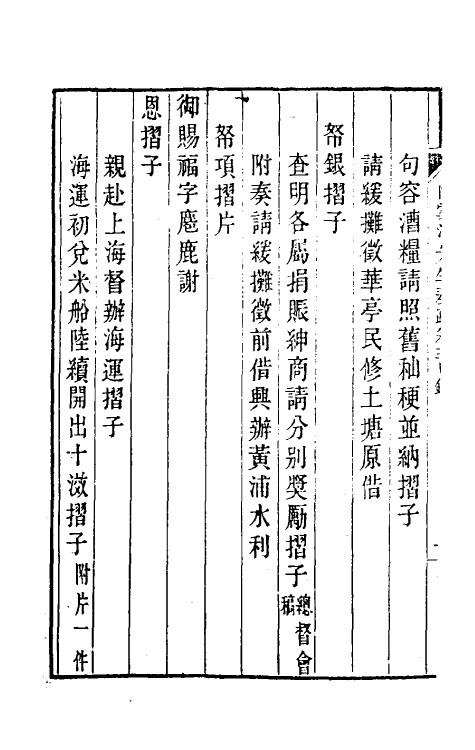 句容漕糧請照舊秈粳並納摺子
請緩攤徵華亭民修土塘原借
帑銀摺子
查明各屬捐賑紳商請分别奬勵摺子總督會稿
附奏請緩攤徵前借興辦黃浦水利
帑項摺片
御賜福字麅鹿謝
恩摺子
親赴上海督辦海運摺子
海運初兌米船陸續開出十滧摺子附片一件